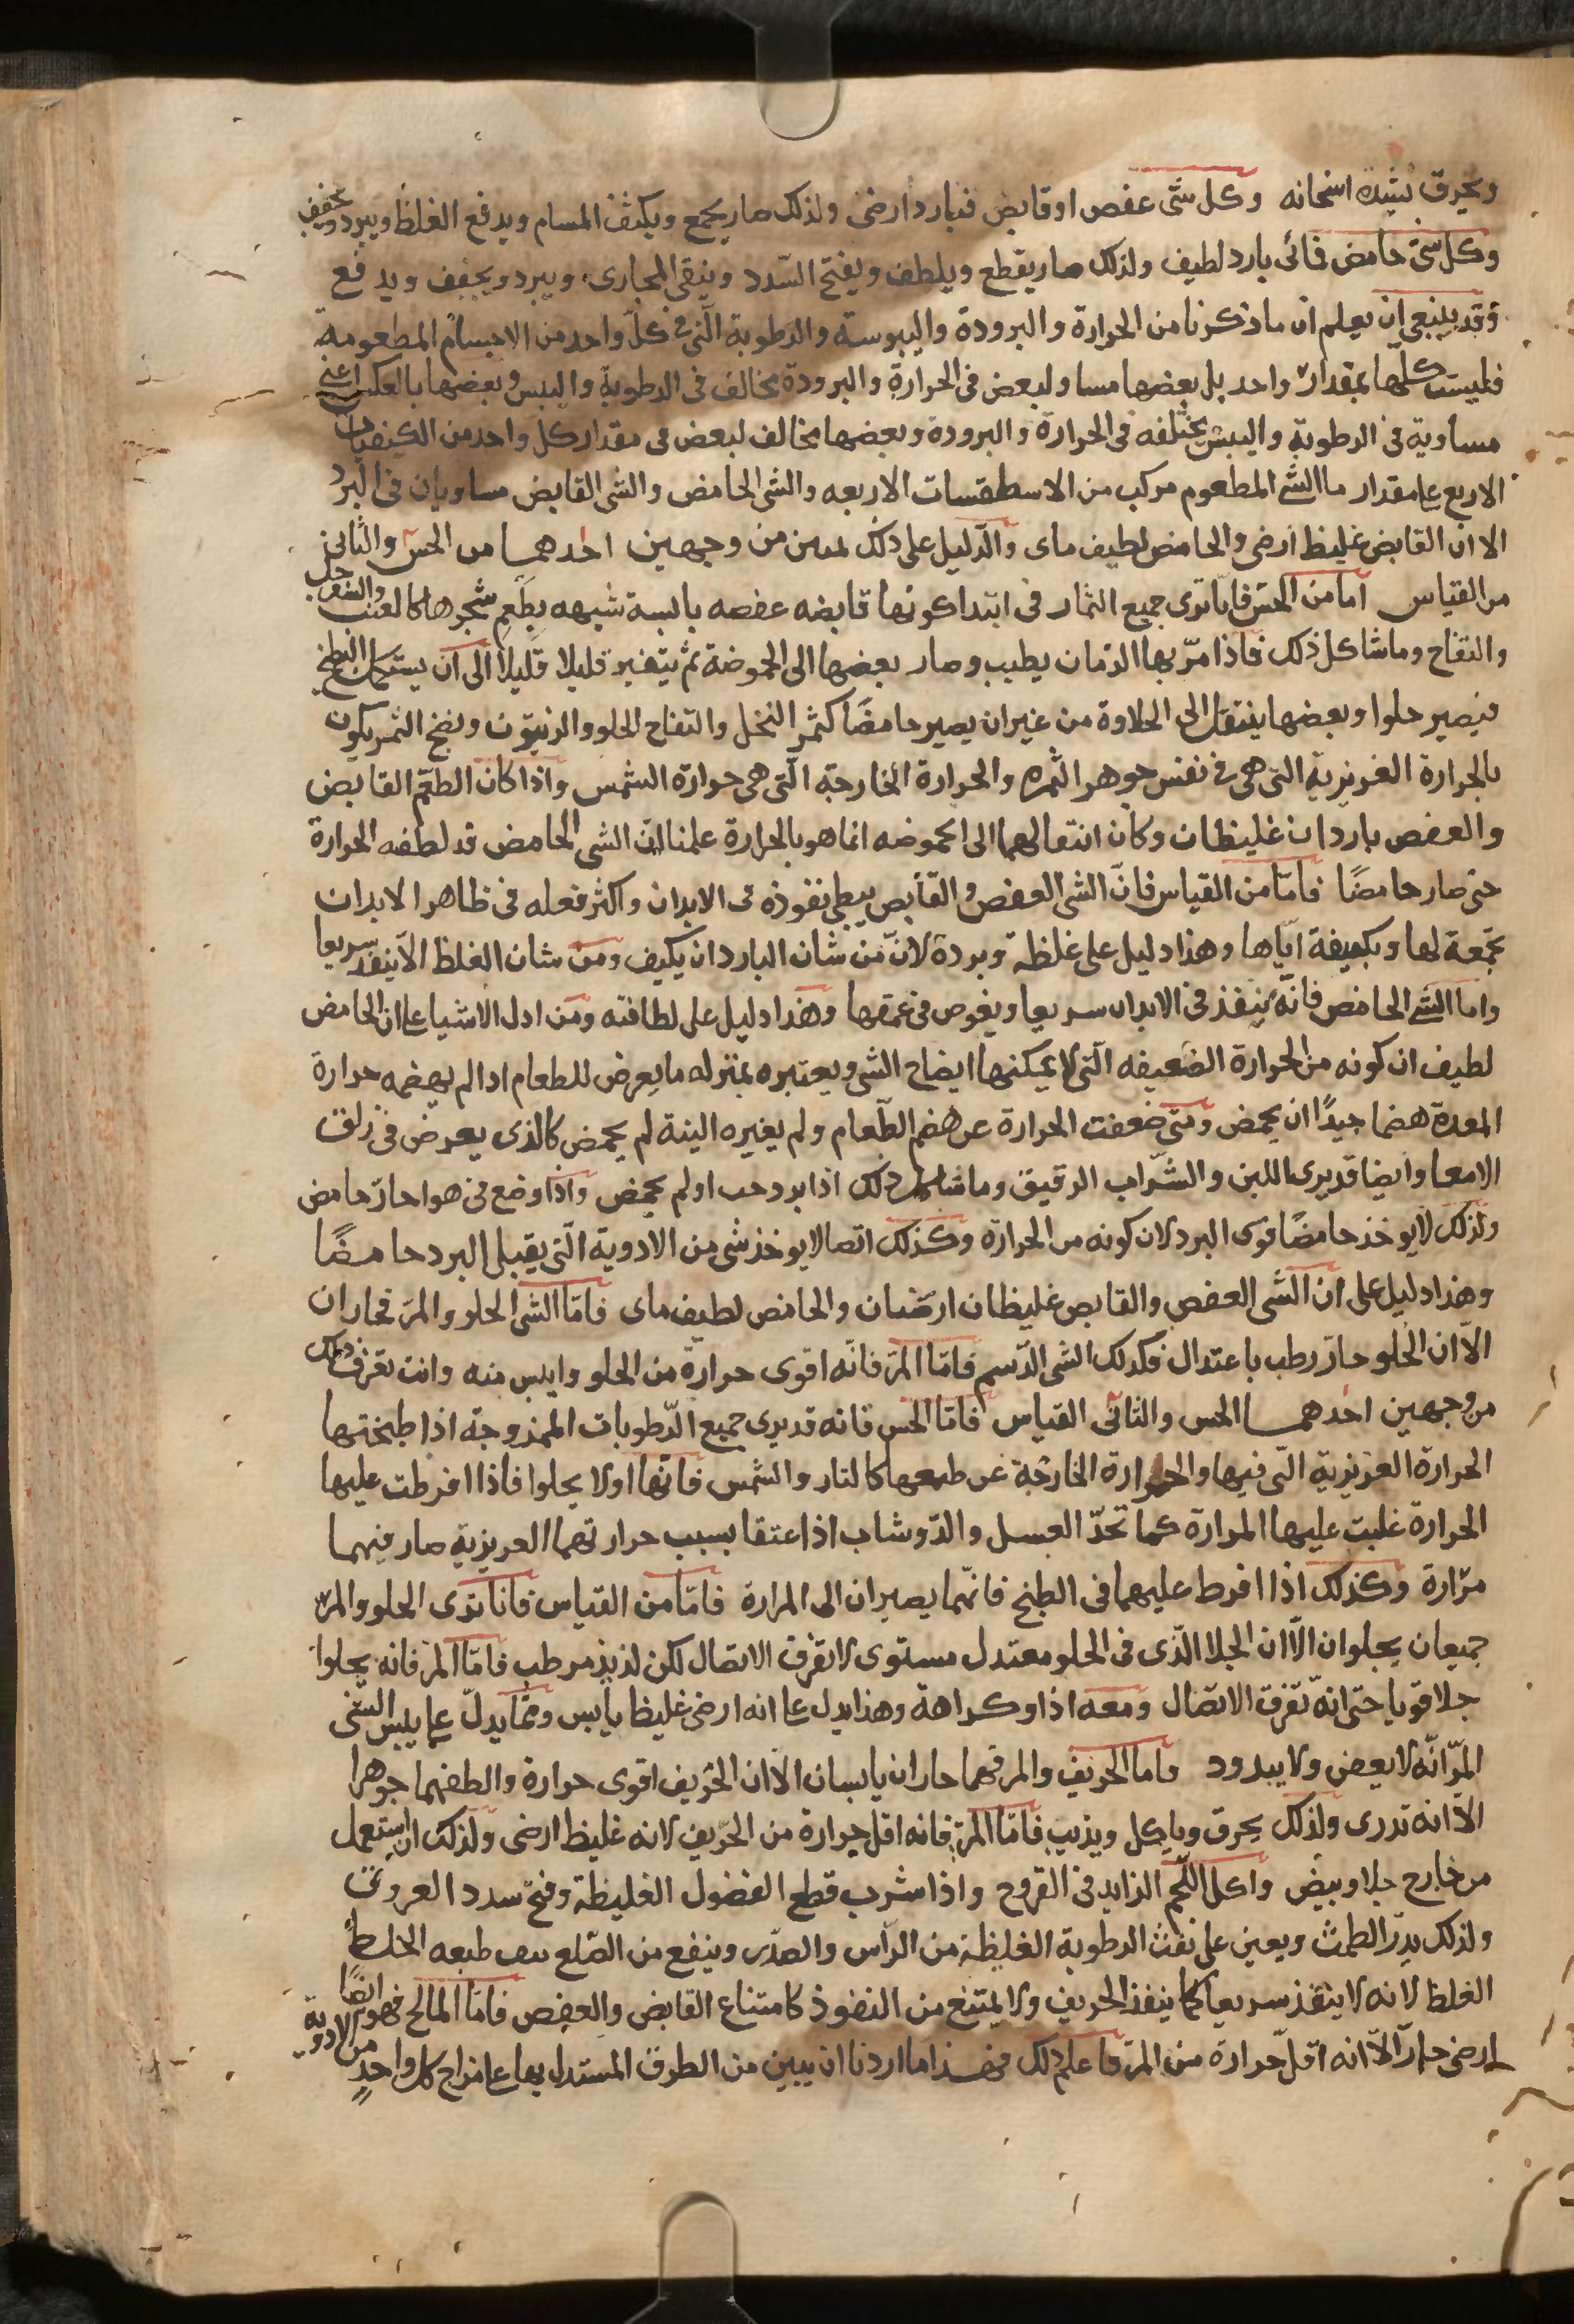 ويحرق بشدة اسخانه وكل شى عفص او قابض فبارد ارضى ولذلك صار يجمع ويكثف المسام ويدفع الغلظ ويبرد ويجفف
وكل شى حامض فمائى بارد لطيف ولذلك صار يقطع ويلطف ويفتح السّدد وينقى المجارى ويبرد ويجفف ويدفع
وقد ينبغى ان يعلم ان ما ذكرنا من الحرارة والبرودة واليبوسة والرطوبة الّتى فى كلّ واحد من الاجسام المطعومة
فليست كلّها بمقدار واحد بل بعضها مساو لبعض فى الحرارة والبرودة مخالف فى الرطوبة واليبس وبعضها بالعكس اعنى
مساوية فى الرطوبة واليبس مختلفه فى الحرارة والبرودة وبعضها مخالف لبعض فى مقدار كل واحد من الكيفيات
الاربع على مقدار ما الشى المطعوم مركب من الاسطقسات الاربعه والشى الحامض والشى القابض مساويان فى البرد
الا ان القابض غليظ ارضى والحامض لطيف ماى والدّليل على ذلك من وجهين احدهما من الحسّ والثانى
من القياس امّا من الحسّ فانّا نرى جميع الثمار فى ابتدا كونها قابضه عفصه يابسة شبيهه بطعم شجرها كالعنب والسفرجل
والتفاح وما شاكل ذلك فاذا مرّ بها الزمان يطيب وصار بعضها الى الحموضة ثم يتغير قليلا قليلا الى ان يستكمل النضج
فيصير حلوا وبعضها ينتقل الى الحلاوة من غير ان يصير حامضًا كثمر النخل والتفاح الحلو والزيتون ونضج الثمر يكون
بالحرارة الغريزية التى هى فى نفس جوهر الثمره والحرارة الخارجة الّتى هى حرارة الشمس واذا كان الطعم القابض
والعفص باردان غليظان وكان انتقالهما الى الحموضه انما هو بالحرارة علمنا انّ الشى الحامض قد لطفه الحرارة
حتى صار حامضًا فامّا من القياس فانّ الشى العفص والقابض يبطى نفوذه فى الابدان واكثر فعله فى ظاهر الابدان
بجمعة لها وتكثيفة ايّاها وهذا دليل على غلظة وبردة لانّ من شان البارد ان يكثف ومن شان الغلظ الاّ ينفذ سريعا
واما الشى الحامض فانّه ينفذ فى الابدان سريعا ويغوص فى عمقها وهذا دليل على لطافته ومن ادل الاشيا على ان الحامض
لطيف ان كونه من الحرارة الضعيفه الّتى لا يمكنها ايضاح الشى ويعتبره بمنزله ما يعرض للطعام اذا لم يهضمه حرارة
المعدة هضما جيدًا ان يحمض ومتى ضعفت الحرارة عن هضم الطّعام ولم يغيره البتة لم يحمض كالذى يعرض فى زلق
الامعا وايضا قد يرى اللبن والشّراب الرقيق وما شاكل ذلك اذا برد لم يحمض واذا وضع فى هوا حارّ حامض
ولذلك لا يوخذ حامضًا قوى البرد لان كونه من الحرارة وكذلك ايضا لا يوخذ شى من الادوية الّتى يقبل البرد حامضًا
وهذا دليل على ان الشى العفص والقابض غليظان ارضيان والحامض لطيف ماى فامّا الشى الحلو والمرّ فحاران
الاّ ان الحلو حارّ رطب باعتدال فكذلك الشى الدّسم فامّا المرّ فانّه اقوى حرارة من الحلو وايبس منه وانت تعرف ذلك
من وجهين احدهما الحس والثانى القياس فامّا الحس فانه قد يرى جميع الرّطوبات الممزوجة اذا طبختها
الحرارة الغريزية الّتى فيها والحرارة الخارجة عن طبعها كالنار والشمس فانّها اولا يحلوا فاذا افرطت عليها
الحرارة غلبت عليها المرارة كما تجدّ العسل والدّوشاب اذا عتقا بسبب حرارتهما الغريزية صار فيهما
مرّارة وكذلك اذا افرط عليهما فى الطبخ فانّهما يصيران الى المرارة فامّا من القياس فانا نرى الحلو والمرّ
جميعان يجلوان الاّ ان الجلا الّذى فى الحلو معتدل مستوى لا تفرق الاتصال لكن لذيذ مرطب فامّا المرّ فانه يجلوا
جلا قويا حتى انّه تفرق الاتصال ومعه اذا وكراهة وهذا يدل على انه ارضى غليظ يابس وممّا يدلّ على يبس الشى
المرّ انّه لا يعفن ولا يبدود فاما الحريف والمر فهما حاران يابسان الا ان الحرّيف اقوى حرارة والطفهما جوهرا
الاّ انه ندرى ولذلك يحرق وياكل ويذيب فامّا المرّ فانه اقل حرارة من الحرّيف لانه غليظ ارضى ولذلك ان استعمل
من خارج جلا وبيض واكل اللّحم الزايد فى القروح واذا شرب قطع الفضول الغليظة وفتح سدد العروق
ولذلك يدرّ الطمث ويعين على نفث الرطوبة الغليظة من الرأس والصدر وينفع من الصّلع طبعه الخلط
الغلظ لانه لا ينفذ سريعا كما ينفذ الحريف ولا يمتنع من النفوذ كامتناع القابض والعفص فامّا المالح فهو ايضًا
ارضى حارّ الاّ انه اقلّ حرارة من المرّ فاعلم ذلك فهذا ما اردنا ان نبين من الطرق المستدل بها على مزاج كل واحدٍ من الادوية